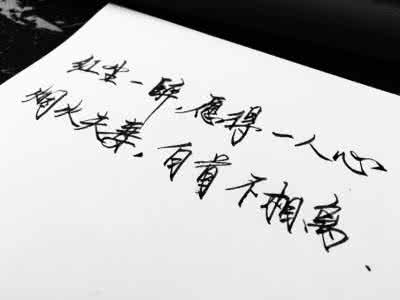 红尘一醉,愿得一人心
烟火夫妻,白首不相离、